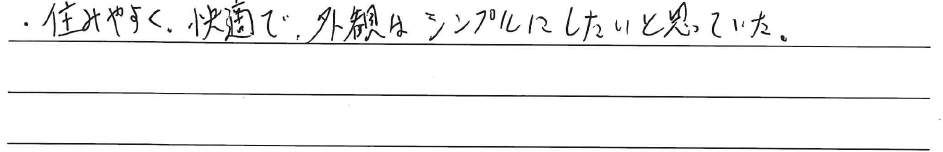 ・住みやすく、快適で、外観はシンプルにしたいと思っていた。